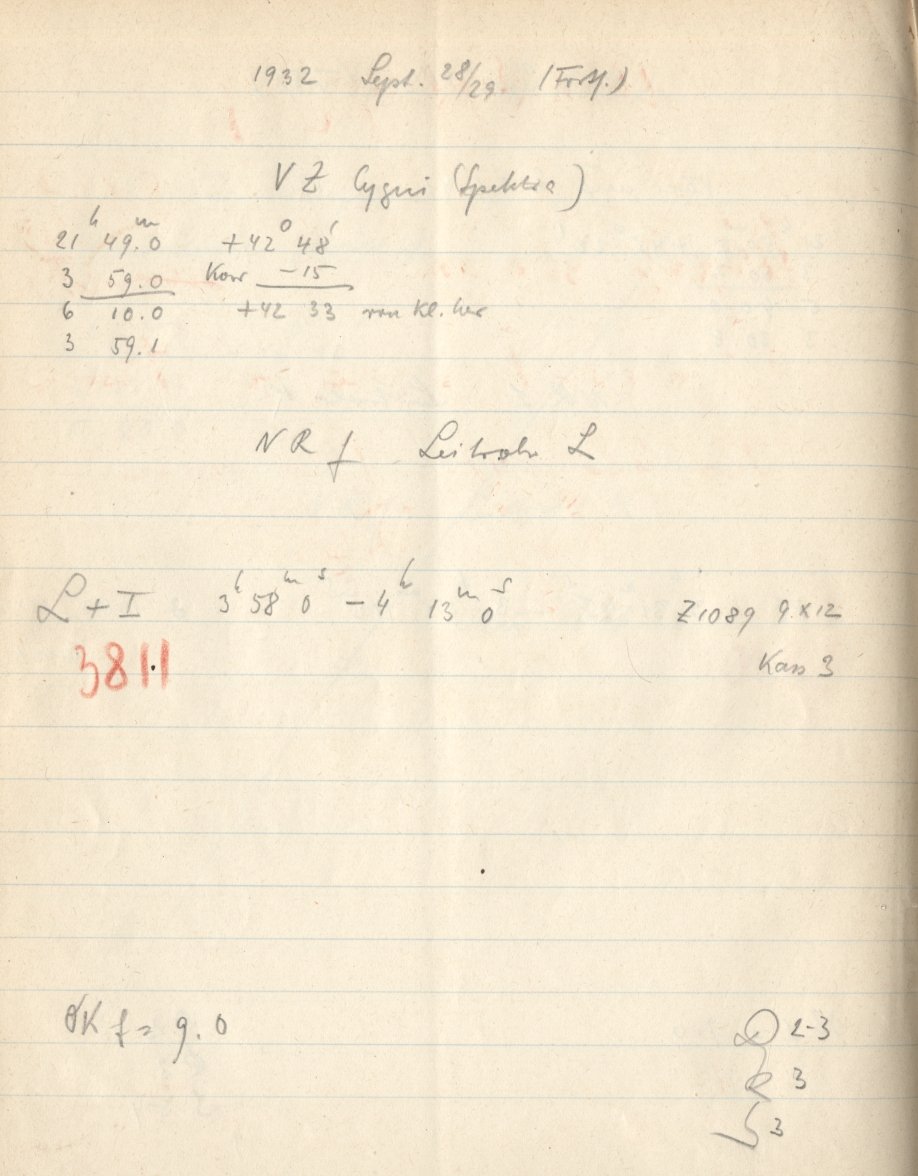 1932 Sept. 28/29 (Forts.)
VZ Cygni (Spektra)
21ʰ 49.ᵐ0 +42° 48'
3 59.0 Korr -15
6 10.0 +42 33 von Kl. her
3 59.1
NR f Leitrohr L
L + I 3ʰ 58ᵐ 0ˢ - 4ʰ 13ᵐ 0ˢ Z1089 9x12
3811 Kass 3
OK f = 9.0 2-3
3
3